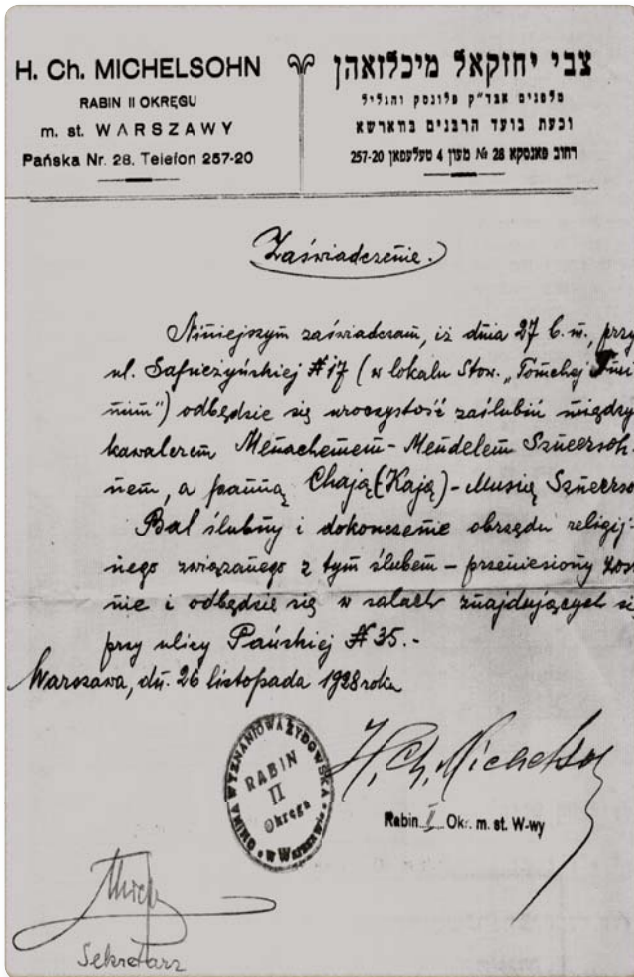 H. Ch. MICHELSOHN
RABIN II OKRĘGU
m. st. WARSZAWY
Pańska Nr. 28. Telefon 257-20
צבי יחזקאל מיכלזאהן
מלפנים אבד"ק פלונסק והגליל
וכעת בועד הרבנים בווארשא
רחוב פאנסקא 28 № מעון 4 טעלעפאן 257-20
Zaświadczenie.
Niniejszym zaświadczam, iż dnia 27 b.m., przy
ul. # 17 (w lokalu Stow. „Tomchej Tmi
mim") odbędzie się uroczystość zaślubin między
kawalerem Menachemem-Mendelem Szneersoh-
nem, a panną Chają (Kają)-Musią Szneerso
Bal ślubny i dokończenie obrzędu religij-
nego związanego z tym ślubem - przeniesiony zos
nie i odbędzie się w salach znajdujących się
przy ulicy Pańskiej # 35.-
Warszawa, dn. 26 listopada 1928 roku
GMINA WYZNANIOWA ŻYDOWSKA
RABIN
II
Okręgu
w Warszawie
H. Ch. Michelson
Rabin II Okr. m. st. W-wy
Sekretarz